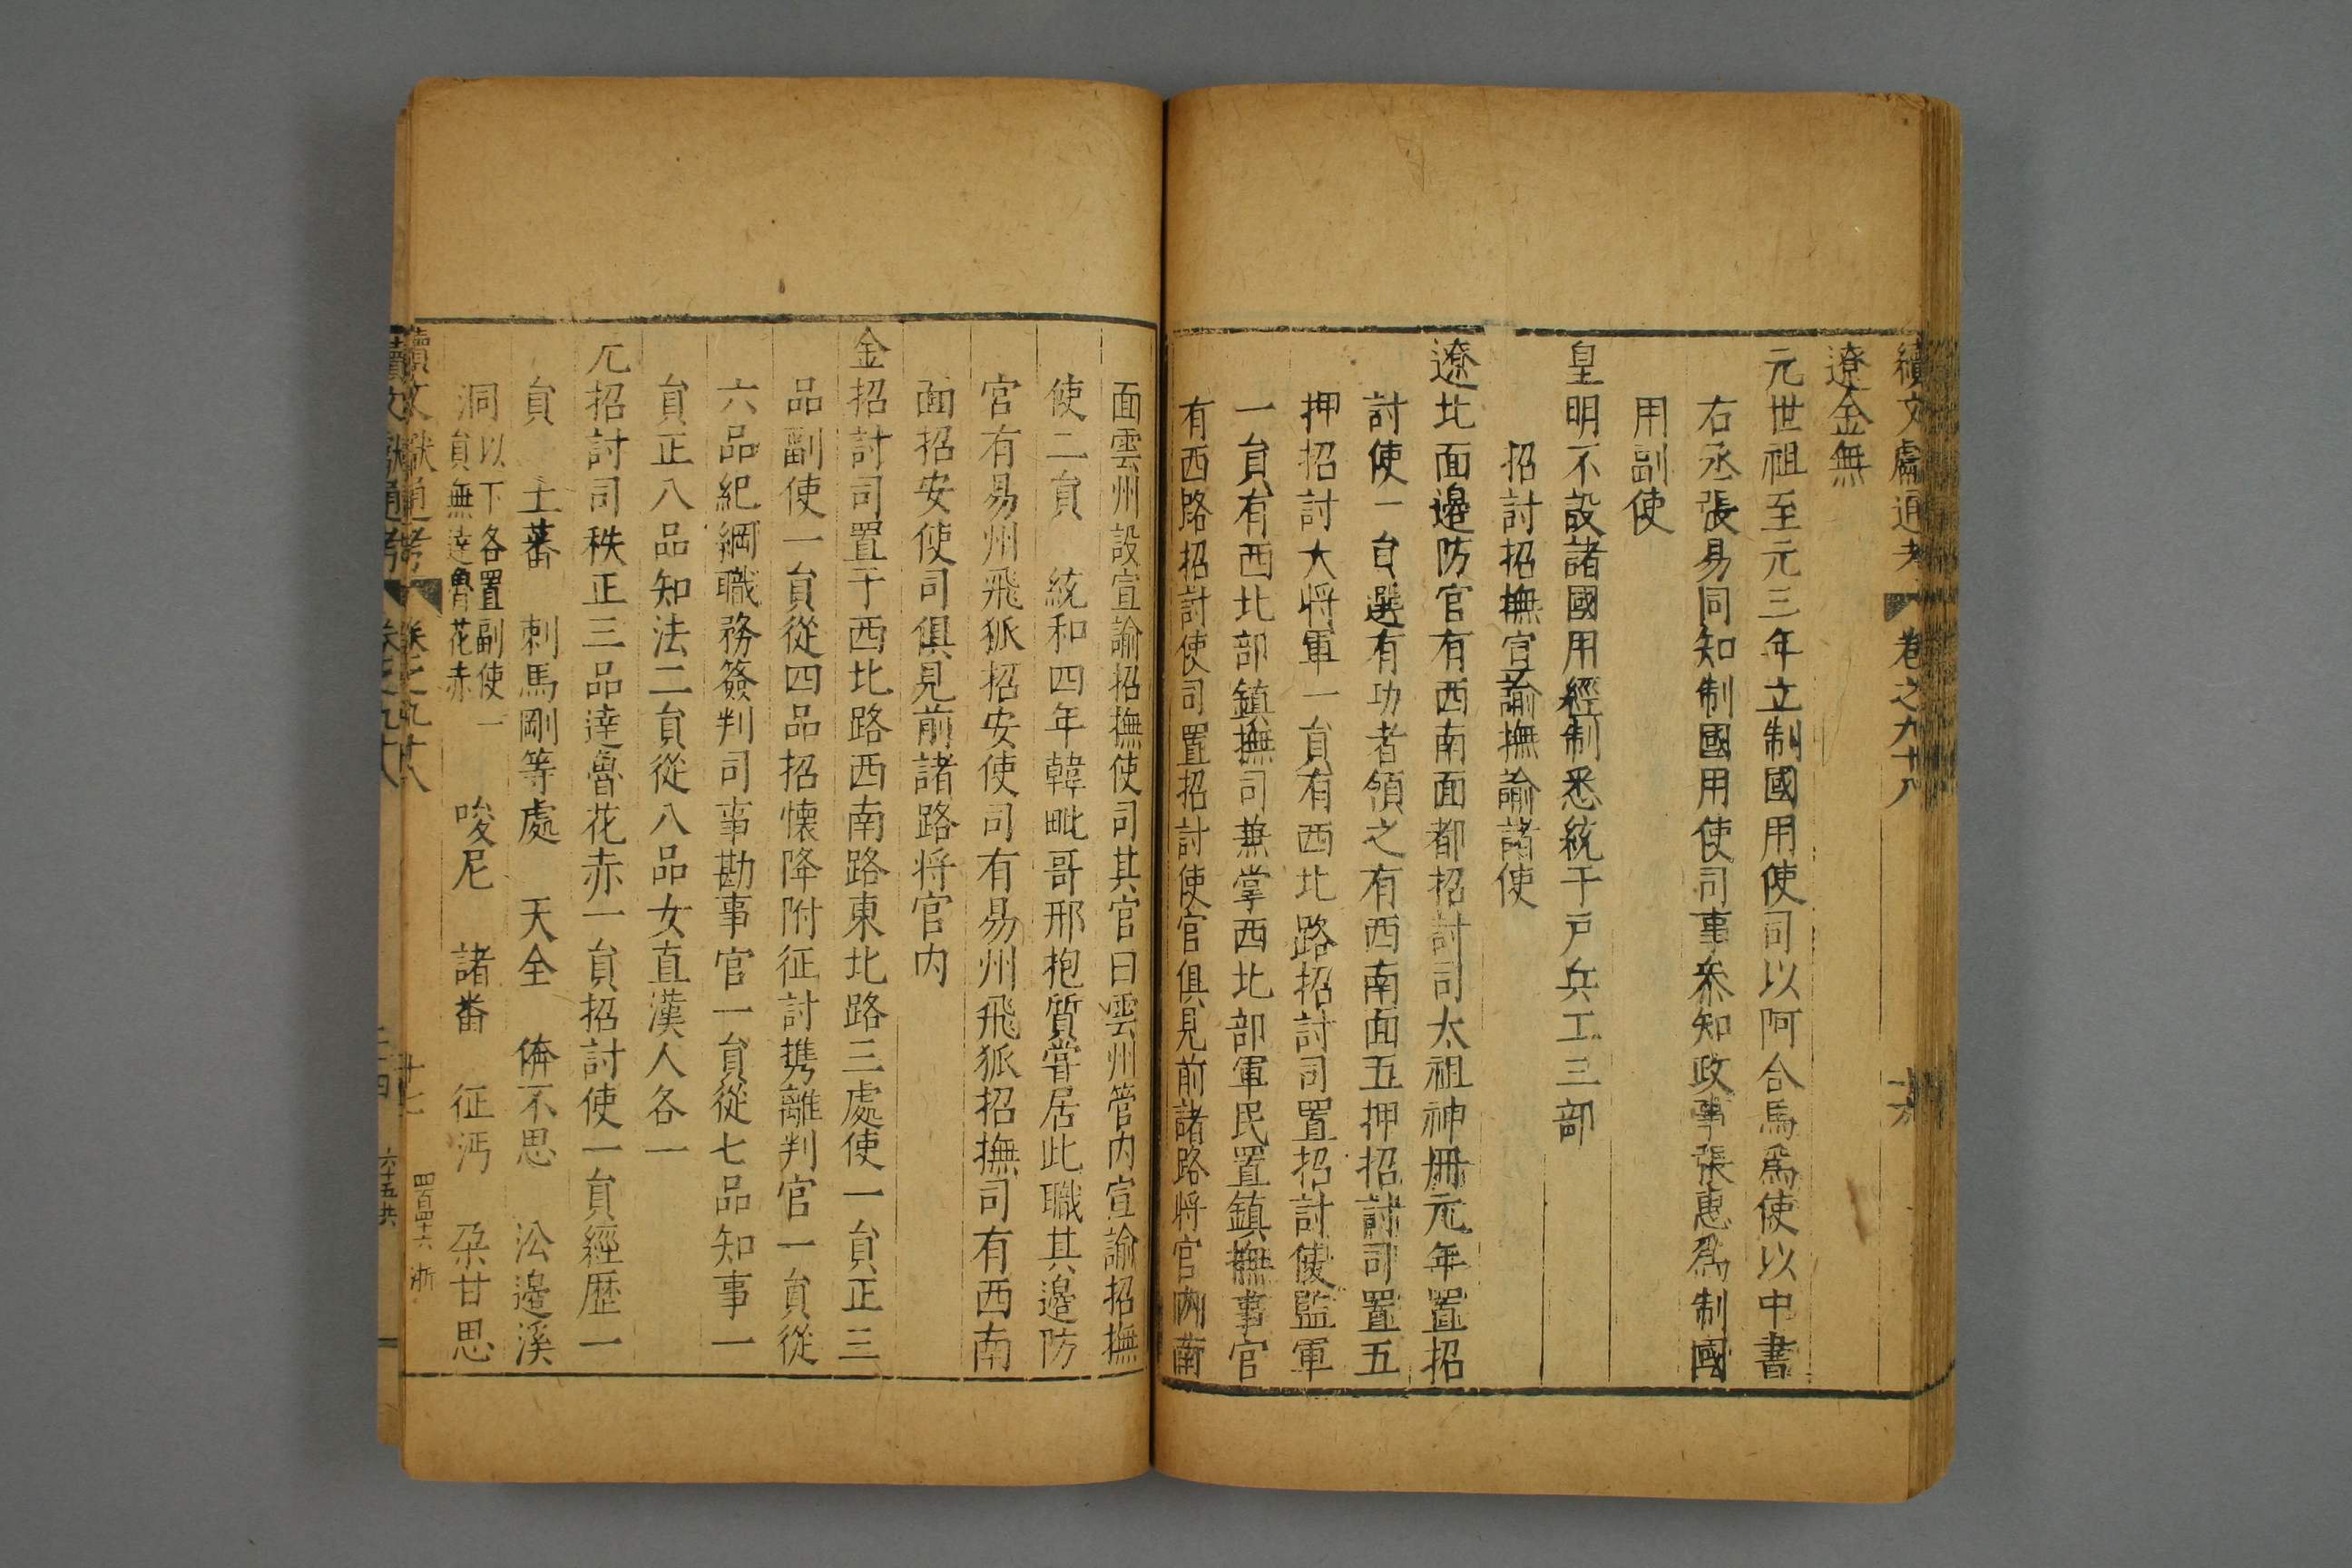 續文獻通考 卷之九十八
遼金無
元世祖至元三年立制國用使司以阿合馬爲使以中書
右丞張易同知制國用使司事叅知政事張惠爲制國
用副使
皇明不設諸國用經制悉統于戶兵工三部
招討招撫宣諭撫諭諸使
遼北面邊防官有西南面都招討司太祖神冊元年置招
討使一員選有功者領之有西南面五押招討司置五
押招討大將軍一員有西北路招討司置招討使監軍
一員有西北部鎮撫司兼掌西北部軍民置鎮撫事官
有西路招討使司置招討使官俱見前諸路將官內南
面雲州設宣諭招撫使司其官曰雲州管內宣諭招撫
使二員 統和四年韓毗哥邢抱質嘗居此職其邊防
官有易州飛狐招安使司有易州飛狐招撫司有西南
面招安使司俱見前諸路将官內
金招討司置于西北路西南路東北路三處使一員正三
品副使一員從四品招懷降附征討携離判官一員從
六品紀綱職務簽判司事勘事官一員從七品知事一
員正八品知法二員從八品女直漢人各一
元招討司秩正三品達魯花赤一員招討使一員經歷一
員 土蕃 刺馬剛等處 天全 㑼不思 㳂邊溪
洞以下各置副使一員無達魯花赤 唆尼 諸番 征沔 朶甘思
續文獻通考 卷之九十八 十七 四百四十六 浙